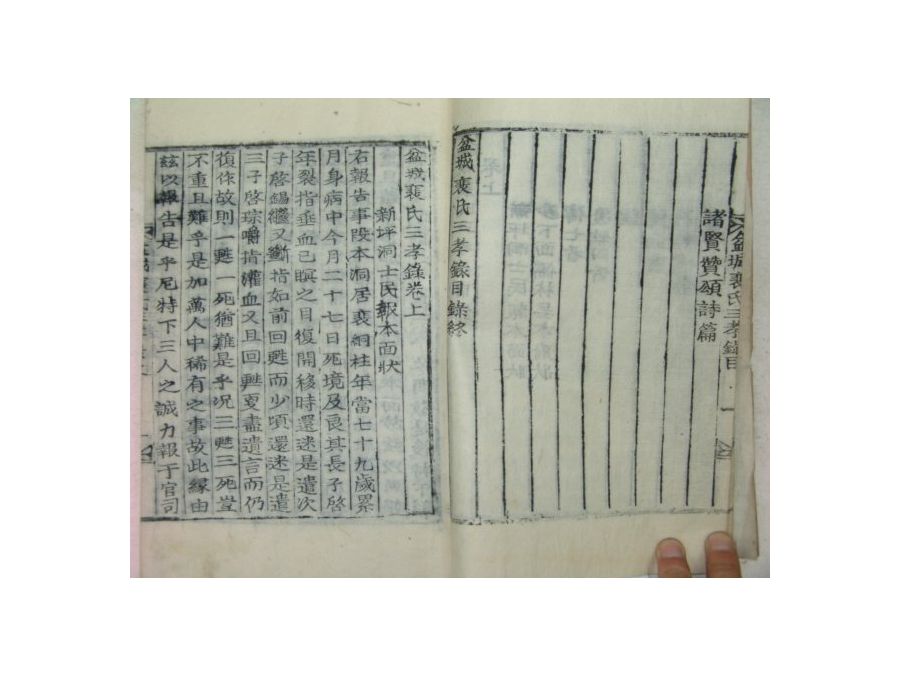 盆城裵氏三孝錄目 一
諸賢贊頌詩篇
盆城裵氏三孝錄目錄終
盆城裵氏三孝錄卷上
新坪洞士民報本面狀
右報告事段本洞居裵絅柱年當七十九歲累
月身病中今月二十七日死境及良其長子啓
年裂指垂血已瞑之目復開移時還迷是遣次
子啓錫繼又斷指如前回甦而少頃還迷是遣
三子啓琮嚼指灌血又且回甦戛盡遺言而仍
復作故則一甦一死猶難是乎況三甦三死豈
不重且難乎是加萬人中稀有之事故此緣由
玆以報告是乎尼特下三人之誠力報于官司